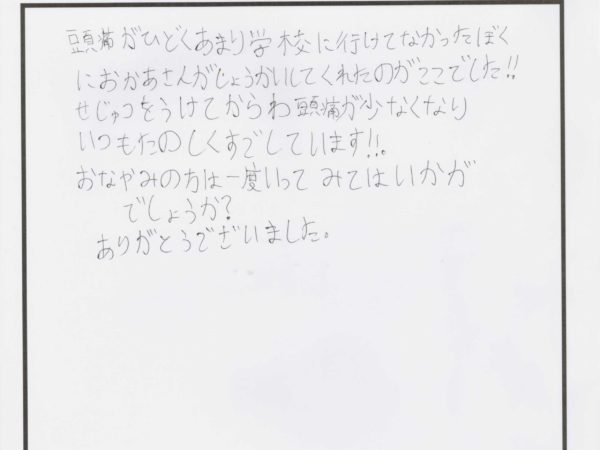 頭痛がひどくあまり学校に行けてなかったぼく
におかあさんがしょうかいしてくれたのがここでした!!
せじゅつをうけてからわ頭痛が少なくなり
いつもたのしくすごしています!!
おなやみの方は一度いってみてはいかが
でしょうか?
ありがとうございました。